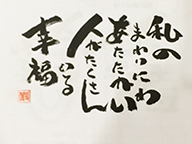 私の
まわりにわ
あたたかい
人がたくさん
いる
幸福